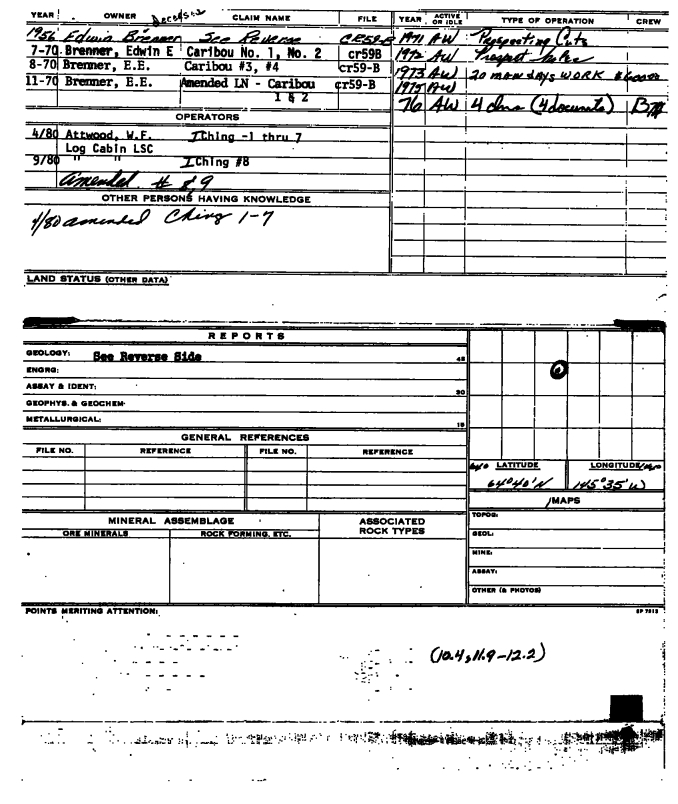 YEAR OWNER Deceased CLAIM NAME FILE YEAR ACTIVE OR IDLE TYPE OF OPERATION CREW
1956 Edwin Brenner See Reverse CR59-B 1971 AW Prospecting Cuts
7-70 Brenner, Edwin E Caribou No. 1, No. 2 cr59B 1972 AW Prospect
8-70 Bremner, E.E. Caribou #3, #4 cr59-B 1973 AW 20 man days WORK
11-70 Brenner, E.E. Amended LN - Caribou 1 & 2 cr59-B 1975 AW
76 AW 4 clms (4 documents)
OPERATORS
4/80 Attwood, W.F. IChing -1 thru 7
Log Cabin LSC
9/80 " " IChing #8
Amended # 8, 9
OTHER PERSONS HAVING KNOWLEDGE
4/80 amended Ching 1-7
LAND STATUS (OTHER DATA)
REPORTS
GEOLOGY: See Reverse Side 45
ENGRG:
ASSAY & IDENT: 30
GEOPHYS. & GEOCHEM.
METALLURGICAL: 15
GENERAL REFERENCES
FILE NO. REFERENCE FILE NO. REFERENCE
LATITUDE LONGITUDE
64°40'N 145°35'W
MAPS
MINERAL ASSEMBLAGE ASSOCIATED ROCK TYPES
ORE MINERALS ROCK FORMING, ETC.
TOPOG:
GEOL:
MINE:
ASSAY:
OTHER (& PHOTOS)
POINTS MERITING ATTENTION:
(10.4, 11.9-12.2)